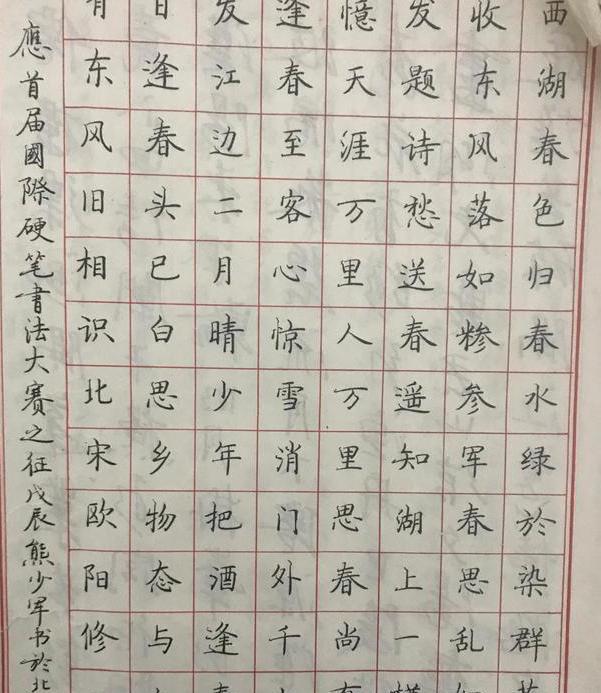 西湖春色归春水绿於染群
收东风落如糁参军春思乱
发题诗愁送春遥知湖上一
憶天涯万里人万里思春尚
逢春至客心惊雪消门外千
发江边二月晴少年把酒逢
日逢春头已白思乡物态与
有东风旧相识北宋欧阳修
應首届國際硬笔書法大赛之征戊辰熊少军书於北